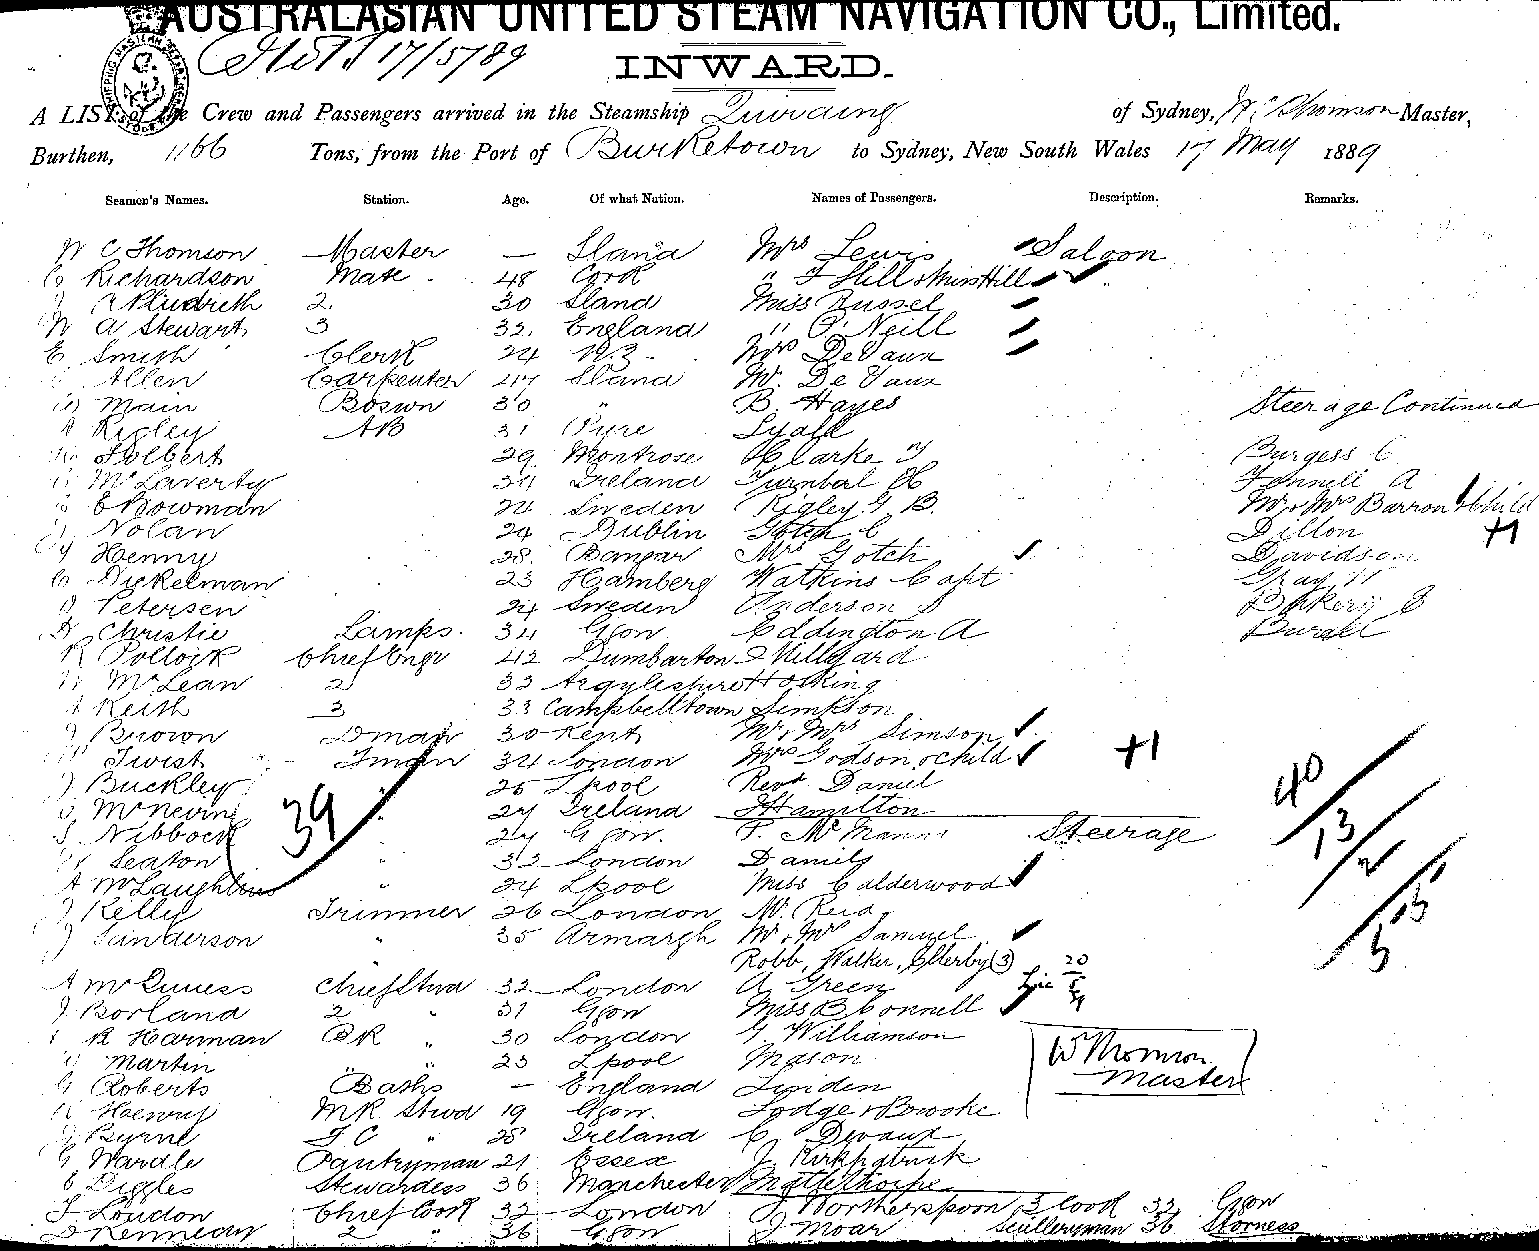 AUSTRALASIAN UNITED STEAM NAVIGATION CO., Limited.
17/5/89
INWARD.
A LIST of the Crew and Passengers arrived in the Steamship Quiraing of Sydney, W. C. Thomson Master,
Burthen, 1166 Tons, from the Port of Burketown to Sydney, New South Wales 17 May 1889
Seamen's Names. Station. Age. Of what Nation. Names of Passengers. Description. Remarks.
W C Thomson Master — Sland Mrs Lewis Saloon
C Richardson Mate 48 Cork " Hill & Miss Hill
2 30 Sland Miss Russel
W A Stewart 3 32 England " O'Neill
E Smith Clerk 24 N.Z. Mrs DeVaux
Allen Carpenter 47 Sland Mr. De Vaux
Main Boswn 30 " B Hayes Steerage Continued
Rigley AB 31 Lyall
Folbert 29 Montrose Clarke Burgess C
McLaverty 24 Ireland Turnbal Fennell A
E Bowman 24 Sweden Rigley G. B. Mr & Mrs Barron & Child
Nolan 24 Dublin Gotch C Dillon +1
Henny 28 Bangar Mrs Gotch Davidson
Dickelman 23 Hamberg Watkins Capt Gray
Petersen 24 Sweden Anderson S
Christie Lamps. 34 Ggow Eddington A
R Pollock Chief Engr 42 Dumbarton
McLean 2 32 Argyleshire Hosking
A Keith 3 33 Campbelltown Simpson
J Brown Dman 30 Kent Mr & Mrs Simson
Twist Fman 34 London Mrs Godson & child +1
J Buckley " 25 Lpool Revd Daniel 40
McNevin " 27 Ireland Hamilton 13
S Nibbock 39 " 27 Ggow. P. McMann Steerage 2
Seaton " 32 London Daniels
A McLaughlin " 24 Lpool Miss Calderwood
J Kelly Trimmer 26 London Mr. Reid
J Sanderson " 35 Armargh Mr & Mrs Samuel
Robb, Walker, Ellerby (3)
A McGuiness Chief Stwd 32 London A Green
J Borland 2 " 31 Ggow Miss B Connell
R Harman BR " 30 London Williamson
Martin " " 23 Lpool Mason W Thomson
G Roberts Baths — England Linden Master
Henry MR Stwd 19 Ggow. Lodge & Bowoke
J Byrne FC " 25 Ireland C Devaux
G Wardle Pantryman 21 Essex J Kirkpatrick
Diggles Stewardess 36 Manchester
F London Chief Cook 32 London J Wortherspoon 3 Cook 32 Ggow
Kennedy 2 " 36 Ggow J Moar Sculleryman 36 Storness